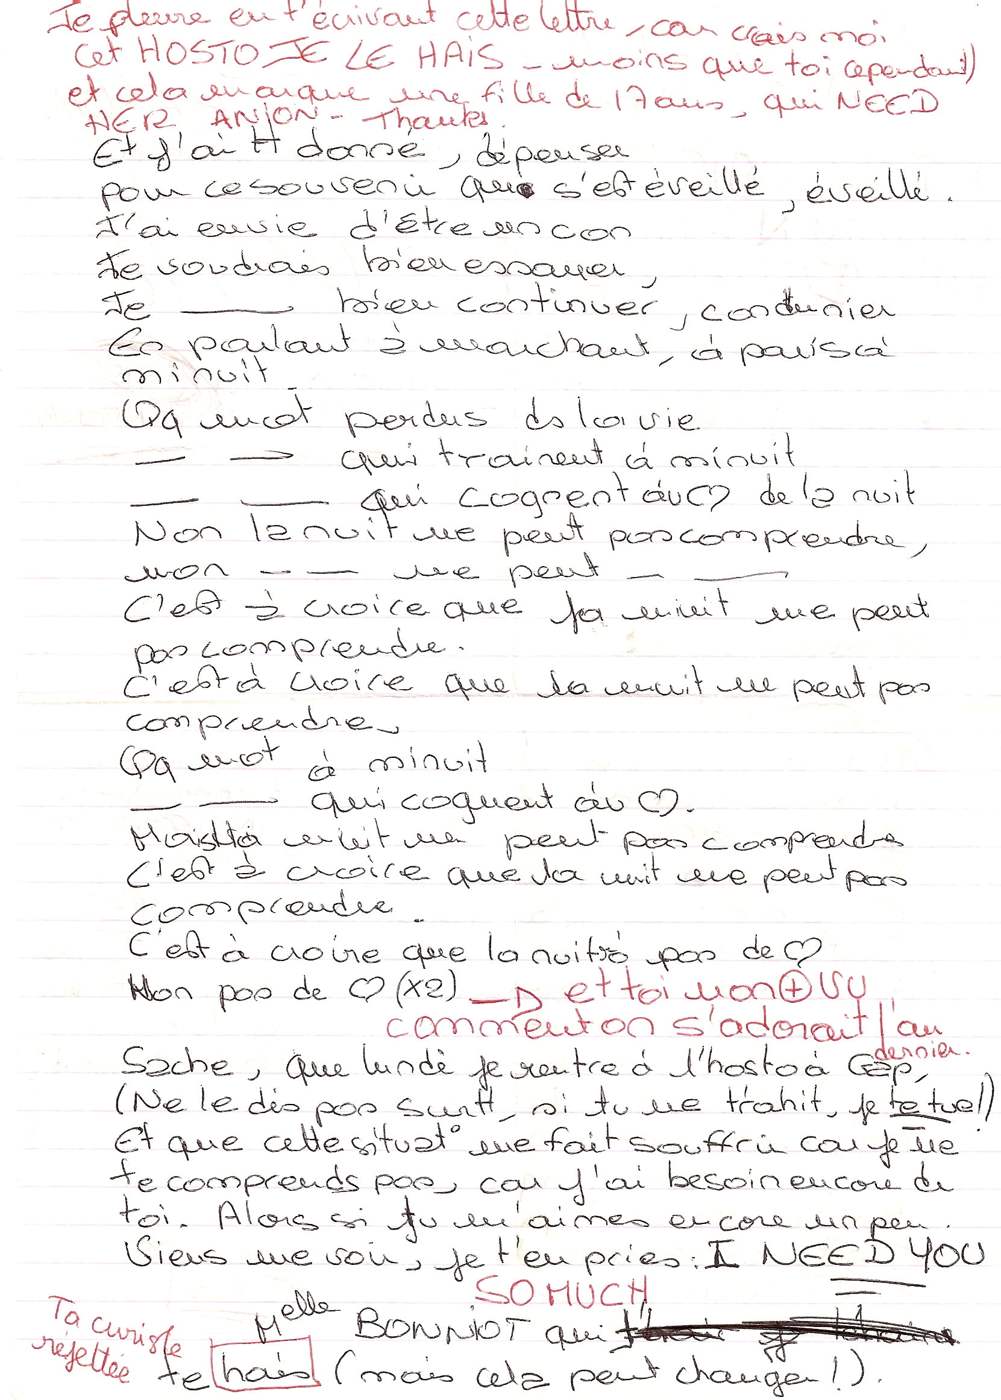 Je pleure en t'écrivant cette lettre, car crois moi
cet HOSTO JE LE HAIS - moins que toi cependant)
et cela marque une fille de 17 ans, qui NEED
HER ANJON - Thanks.
Et j'ai tt donné, dépenser
pour ce souvenir que s'est éveillé, éveillé.
J'ai envie d'être un con
Je voudrais bien essayer,
Je —— bien continuer, continuer
En parlant à marchant, à paris à
minuit.
Qq mot perdus ds la vie
— — qui trainent à minuit
— — qui cognent au ♡ de la nuit
Non la nuit ne peut pas comprendre,
non — — ne peut — —
C'est à croire que la nuit ne peut
pas comprendre.
C'est à croire que la nuit ne peut pas
comprendre,
Qq mot à minuit
— — qui cognent au ♡.
Mais la nuit ne peut pas comprendre
C'est à croire que la nuit ne peut pas
comprendre.
C'est à croire que la nuit pas de ♡
Non pas de ♡ (X2) → et toi non ⊕ VU
comment on s'adorait l'an
dernier.
Sache, que lundi je rentre à l'hosto à Gap,
(Ne le dis pas surtt, si tu me trahit, je te tue!)
Et que cette situat° me fait souffrir car je ne
te comprends pas, car j'ai besoin encore de
toi. Alors si tu m'aimes encore un peu.
Viens me voir, je t'en pries: I NEED YOU
SO MUCH
Melle BONNIOT qui
te hais (mais cela peut changer!).
Ta curiste
rejettée